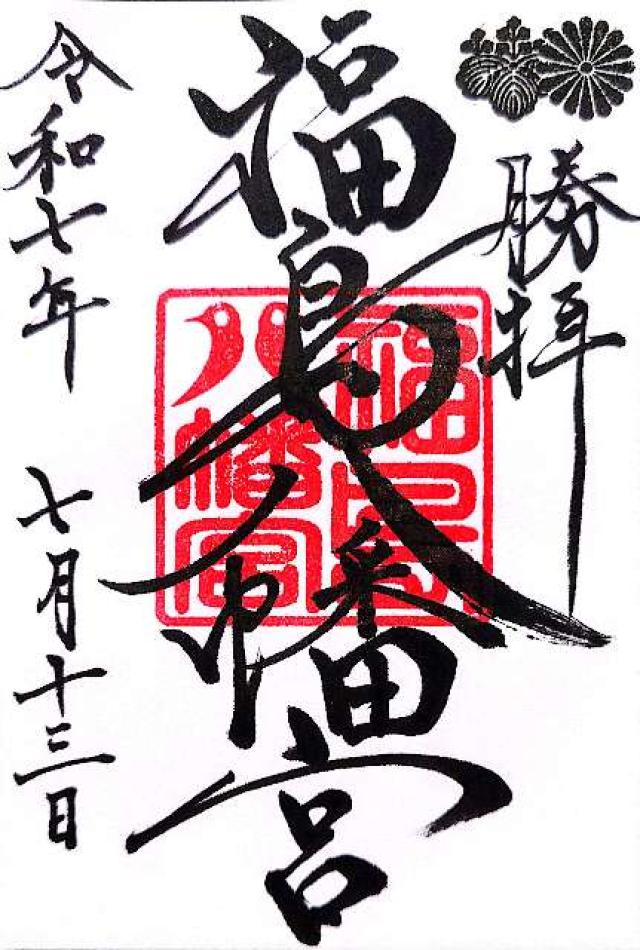 勝拝
福島八幡宮
福島八幡宮
令和七年
七月十三日